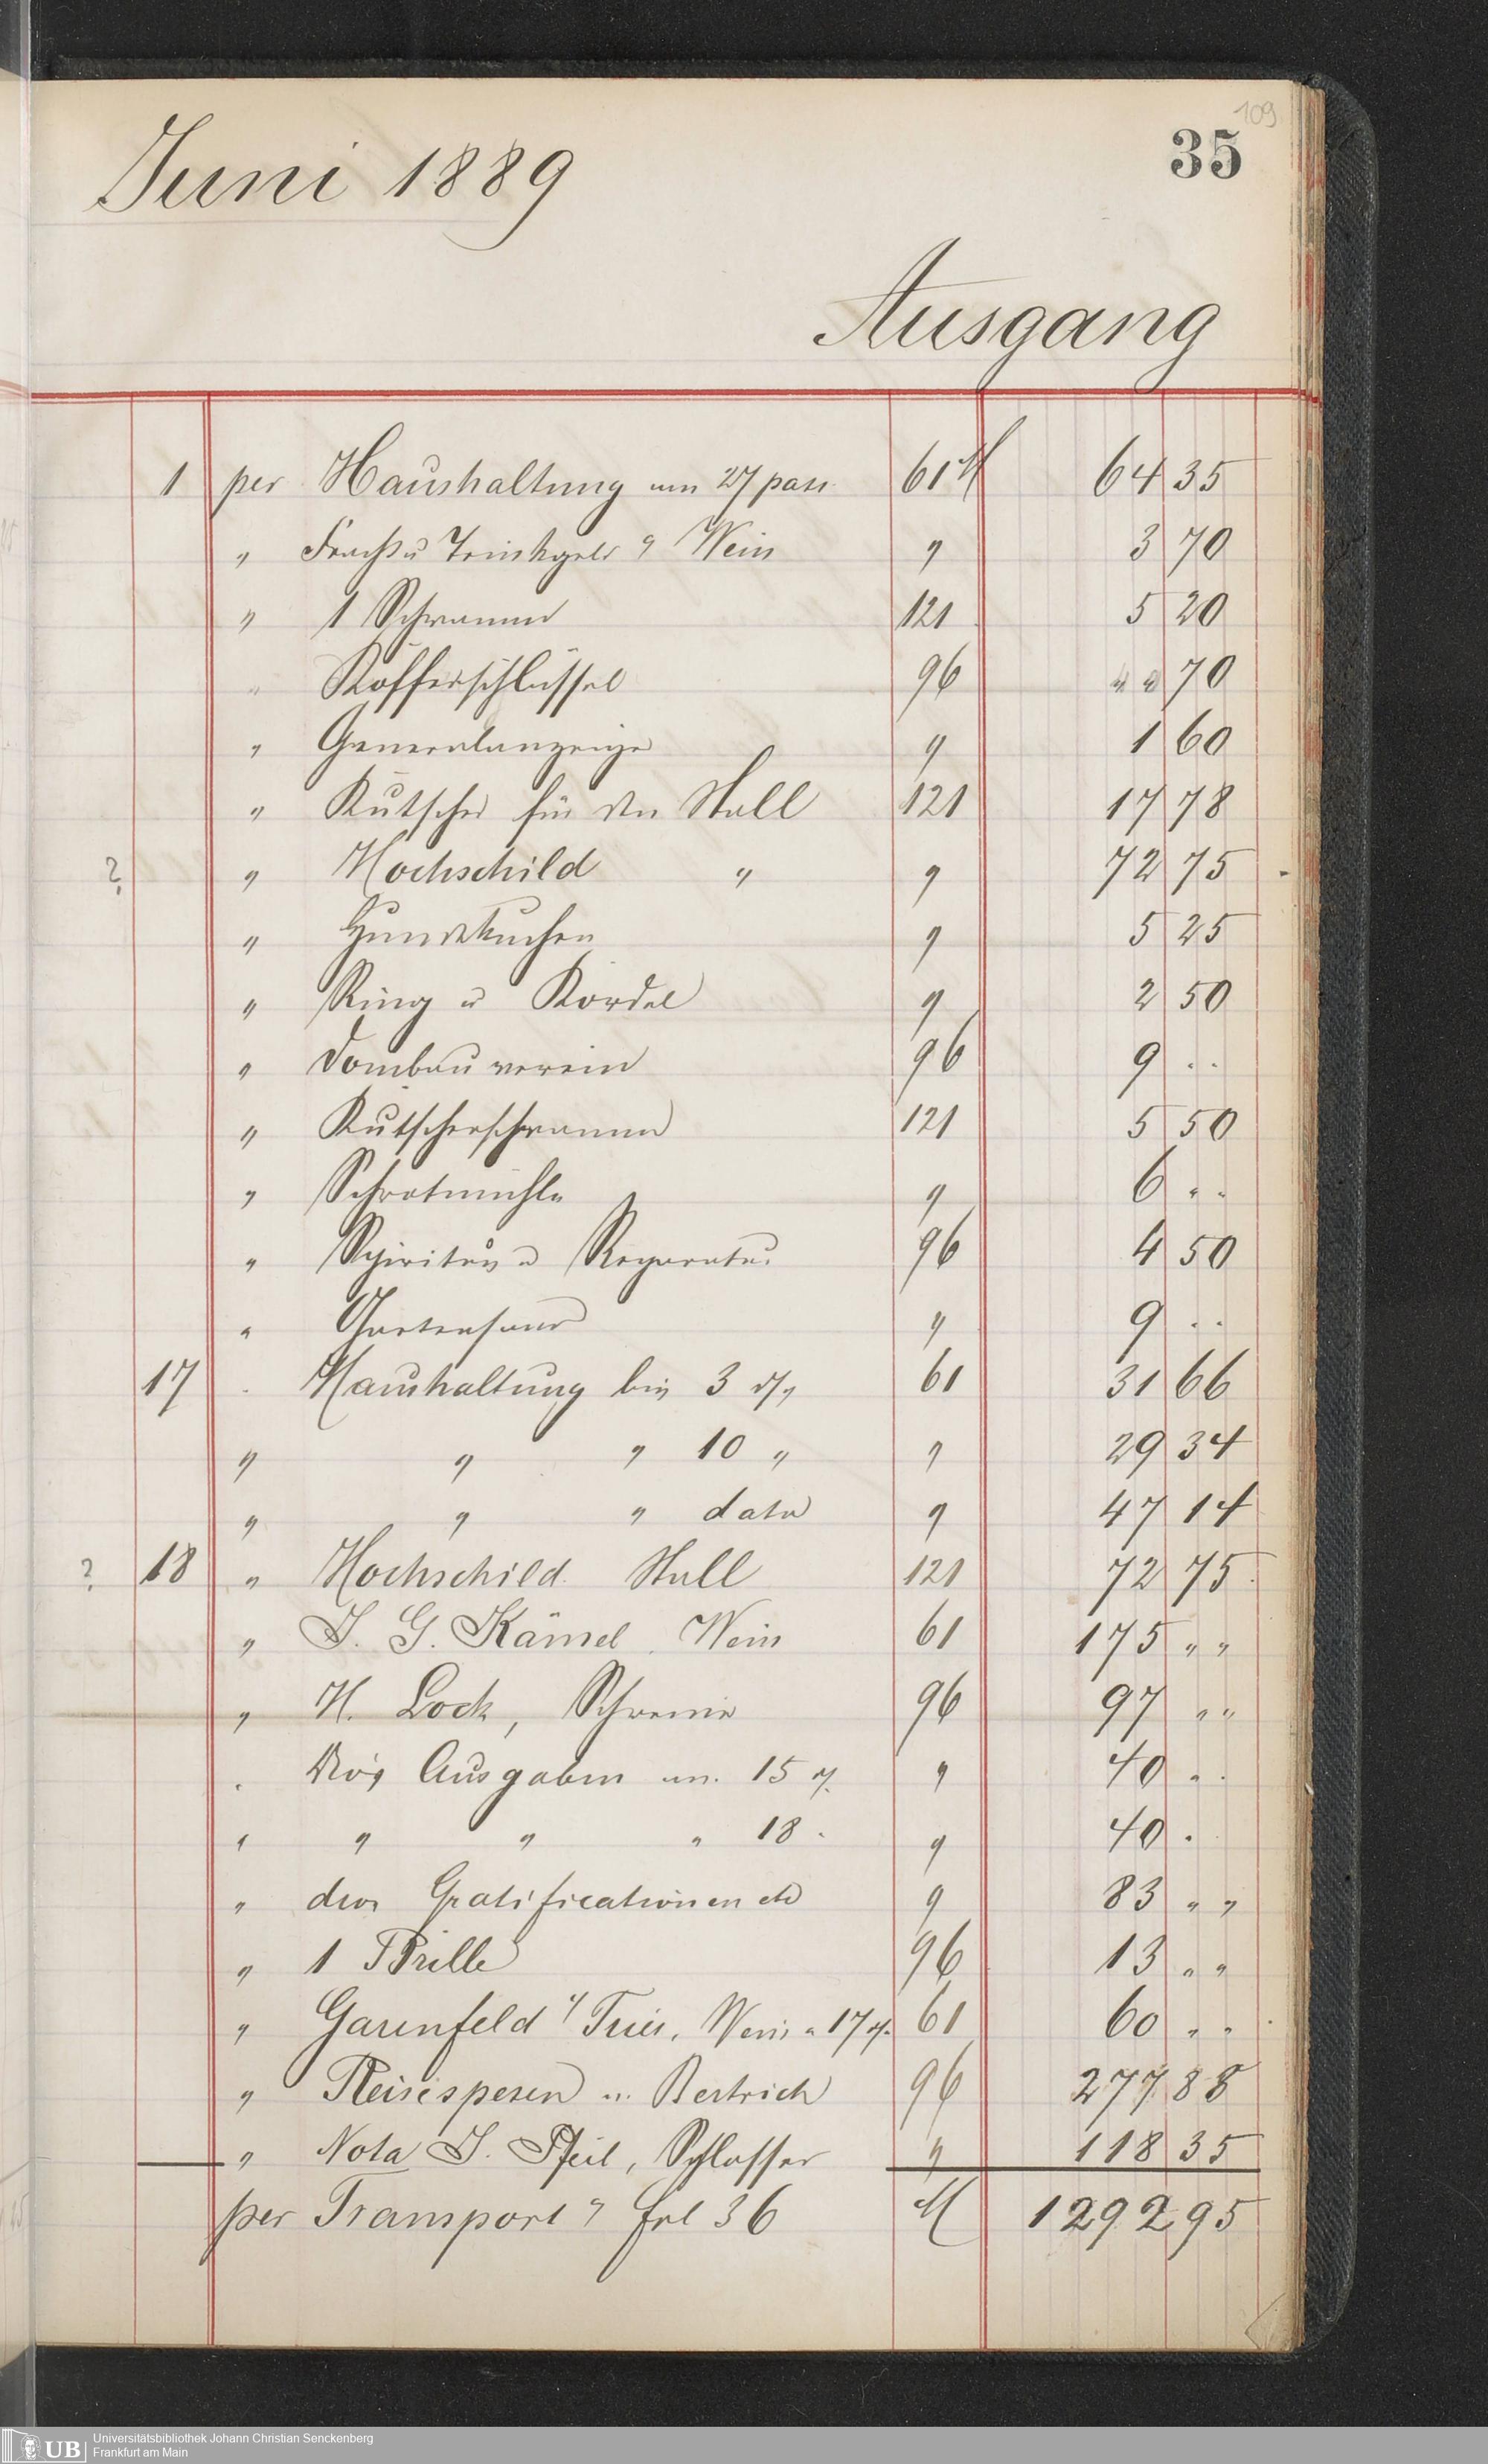 109
35
Juni 1889
Ausgang
1 per Haushaltung um 27 pass. 61 M 64 35
" Fracht u Trinkgeld " Wein " 3 70
" 1 Schwamm 121 5 20
" Kofferschlüssel 96 " " 70
" Generalanzeiger " 1 60
" Kutscher für den Stall 121 17 78
? " Hochschild " " 72 75
" Hundekuchen " 5 25
" Ring u Kordel " 2 50
" Dombauverein 96 9 ..
" Kutscherschwamm 121 5 50
" Schrotmühle " 6 ..
" Spiritus u Reparatur 96 4 50
" Gartensand " 9 ..
17 " Haushaltung bis 3 d/ 61 31 66
" " " 10 " " 29 34
" " " dato " 47 14
? 18 " Hochschild Stall 121 72 75
" J. G. Kämel, Wein 61 175 " "
" H. Lock, Schreiner 96 97 " "
" Div. Ausgaben um 15 " 40 ..
" " " " 18 . " 40 .
" div. Gratificationen etc " 83 " "
" 1 Brille 96 13 " "
" Garenfeld Trier, Wein 17 61 60 " "
" Reisespesen Bertrich 96 277 88
" Nota J. Pfeil, Schlosser " 118 35
per Transport " fol 36 M 1292 95
UB
Universitätsbibliothek Johann Christian Senckenberg
Frankfurt am Main